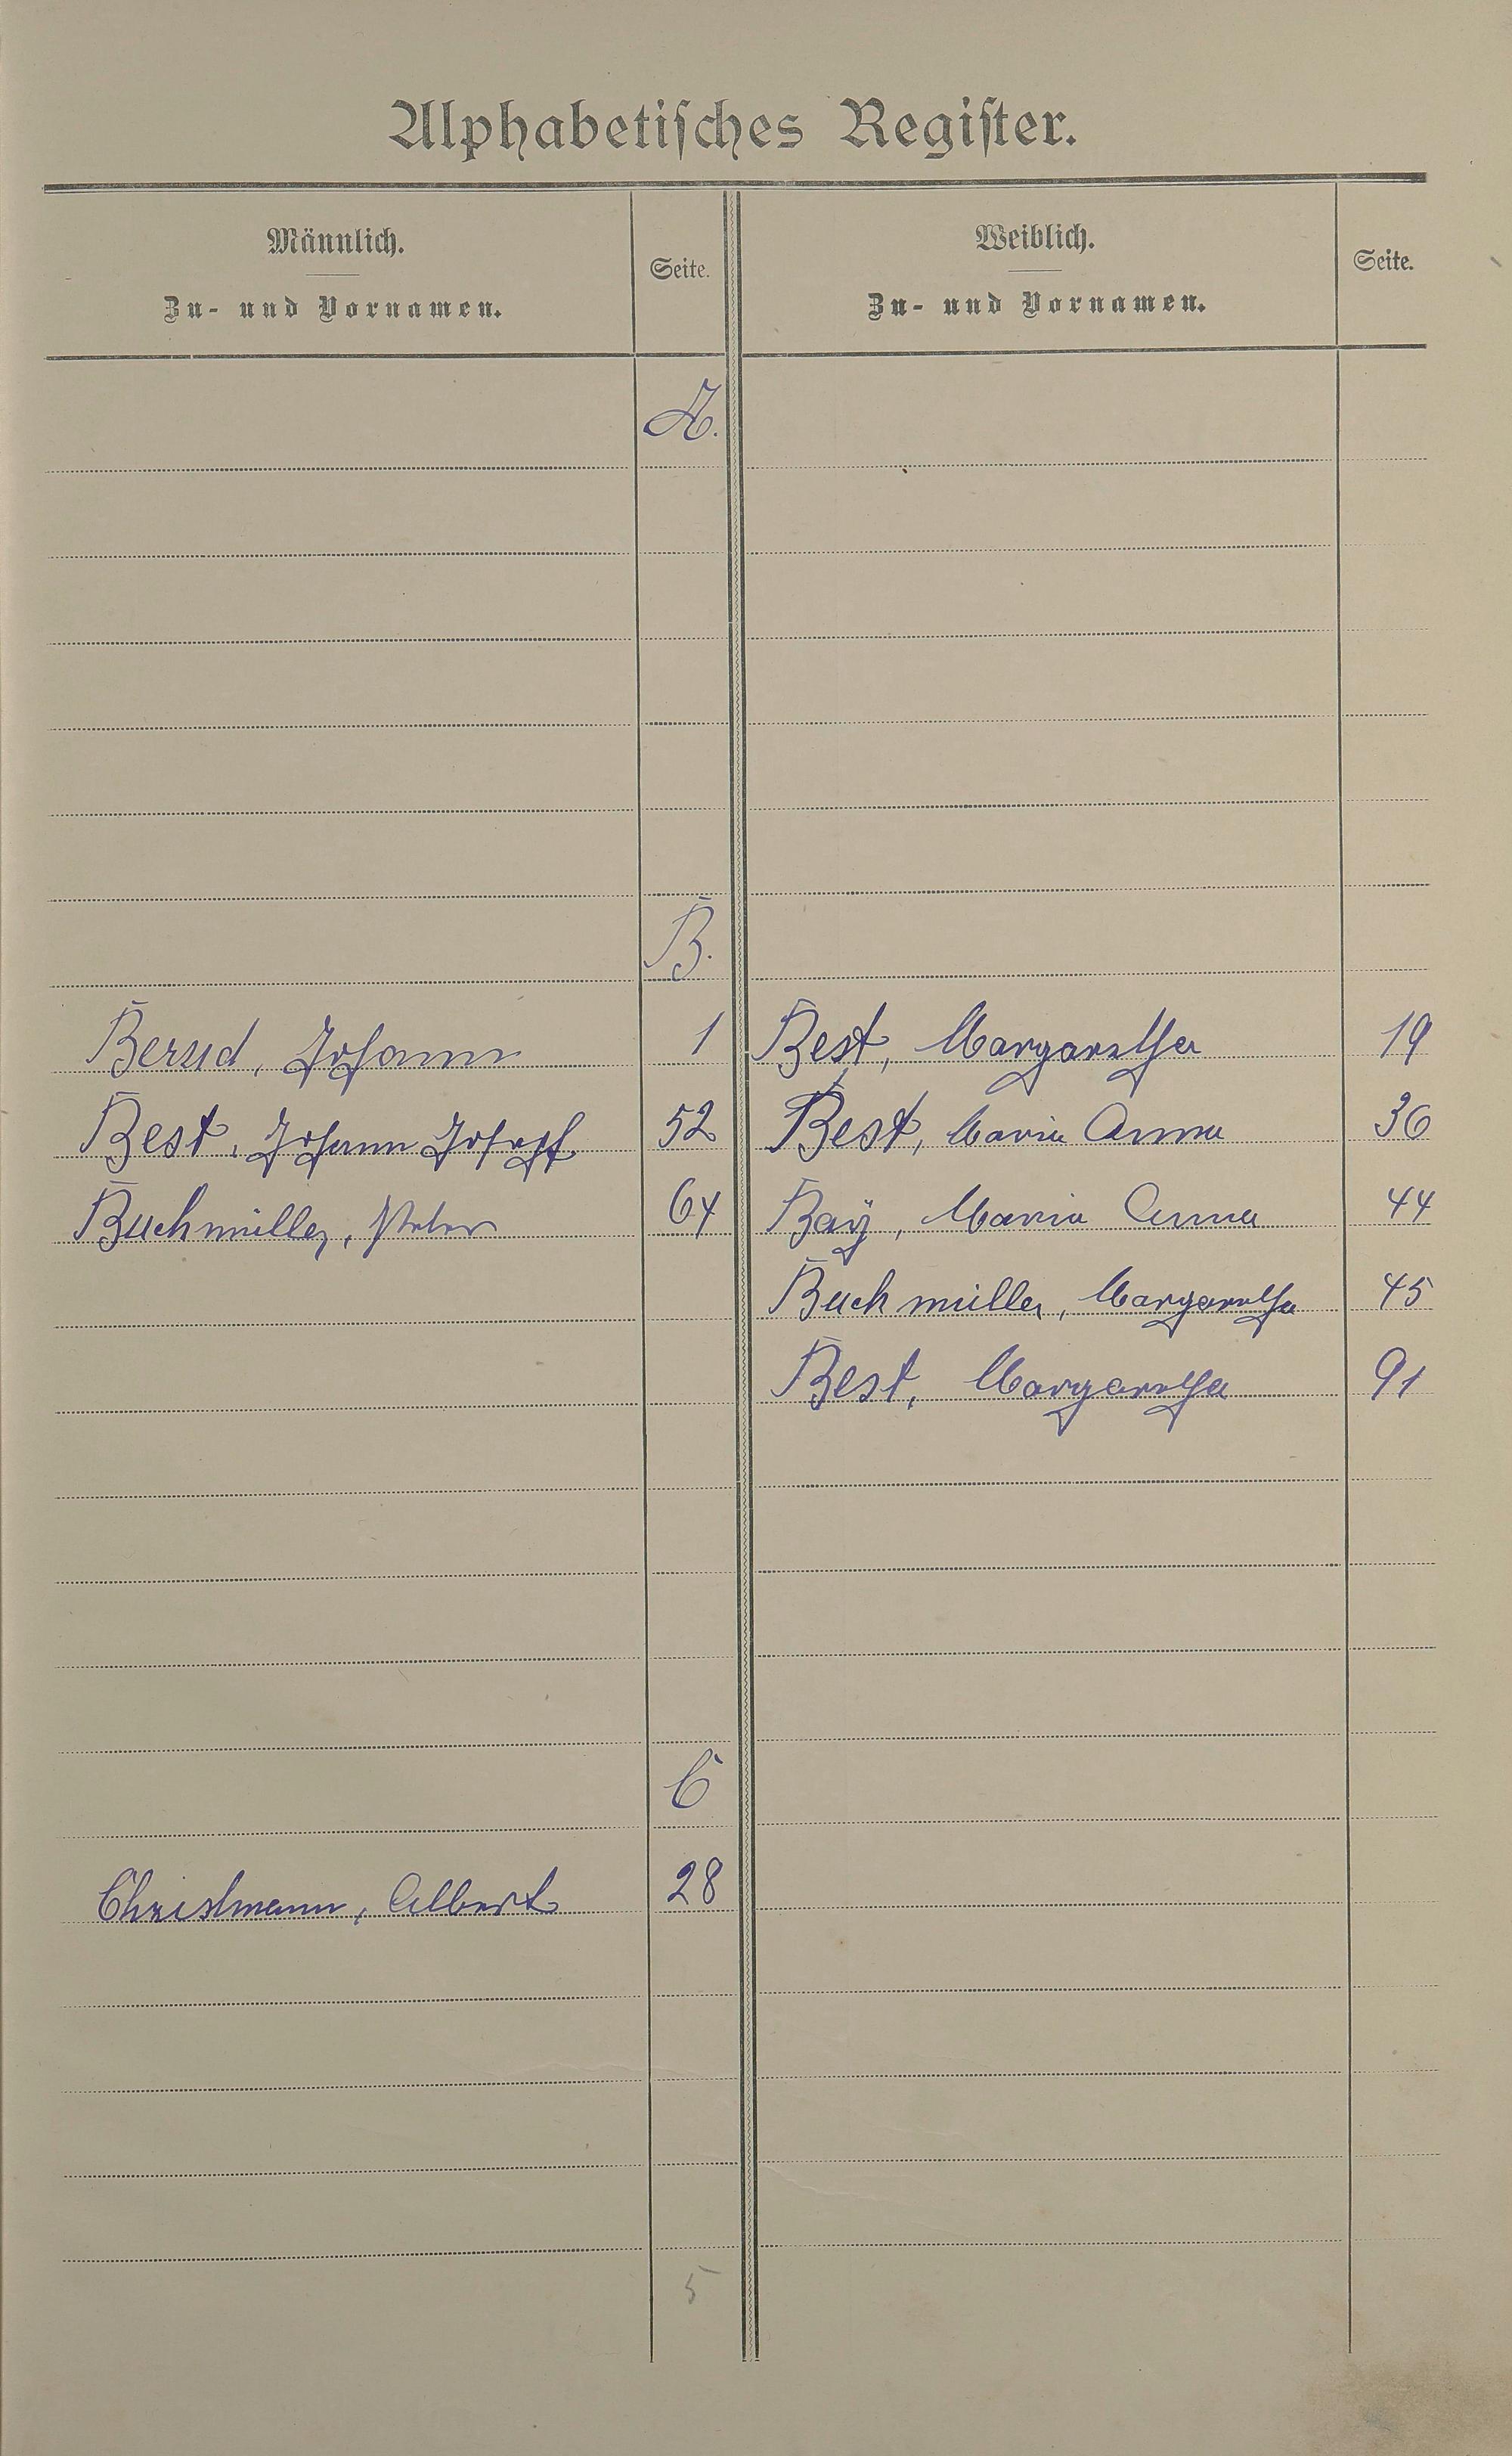 Alphabetisches Register.
Männlich. Seite. Weiblich. Seite.
Zu- und Vornamen. Zu- und Vornamen.
A.
B.
Bernd, Johann 1 Best, Margaretha 19
Best, Johann Josef 52 Best, Maria Anna 36
Buchmüller, Peter 64 Baÿ, Maria Anna 44
Buchmüller, Margaretha 45
Best, Margaretha 91
C
Christmann, Albert 28
5